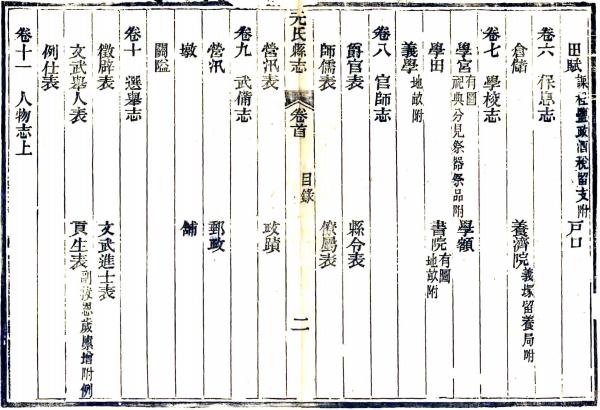 田賦 課程鹽政酒稅留支附 戸口
卷六 保息志
倉儲 養濟院 義塚留養局附
卷七 學校志
學宮 有圖 祀典分見祭器祭品附 學額
學田 書院 有圖 地畝附
義學 地畝附
卷八 官師志
爵官表 縣令表
師儒表 僚屬表
營汛表 政蹟
元氏縣志 卷首 目錄 二
卷九 武備志
營汛 郵政
墩 舖
關隘
卷十 選舉志
徵辟表 文武進士表
文武舉人表 貢生表 副拔恩歲廩增附例
例仕表
卷十一 人物志上